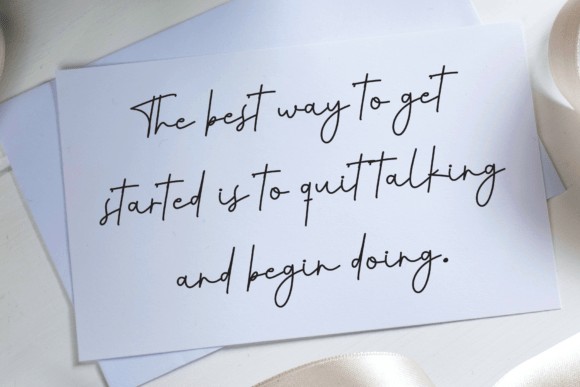 The best way to get
started is to quit talking
and begin doing.